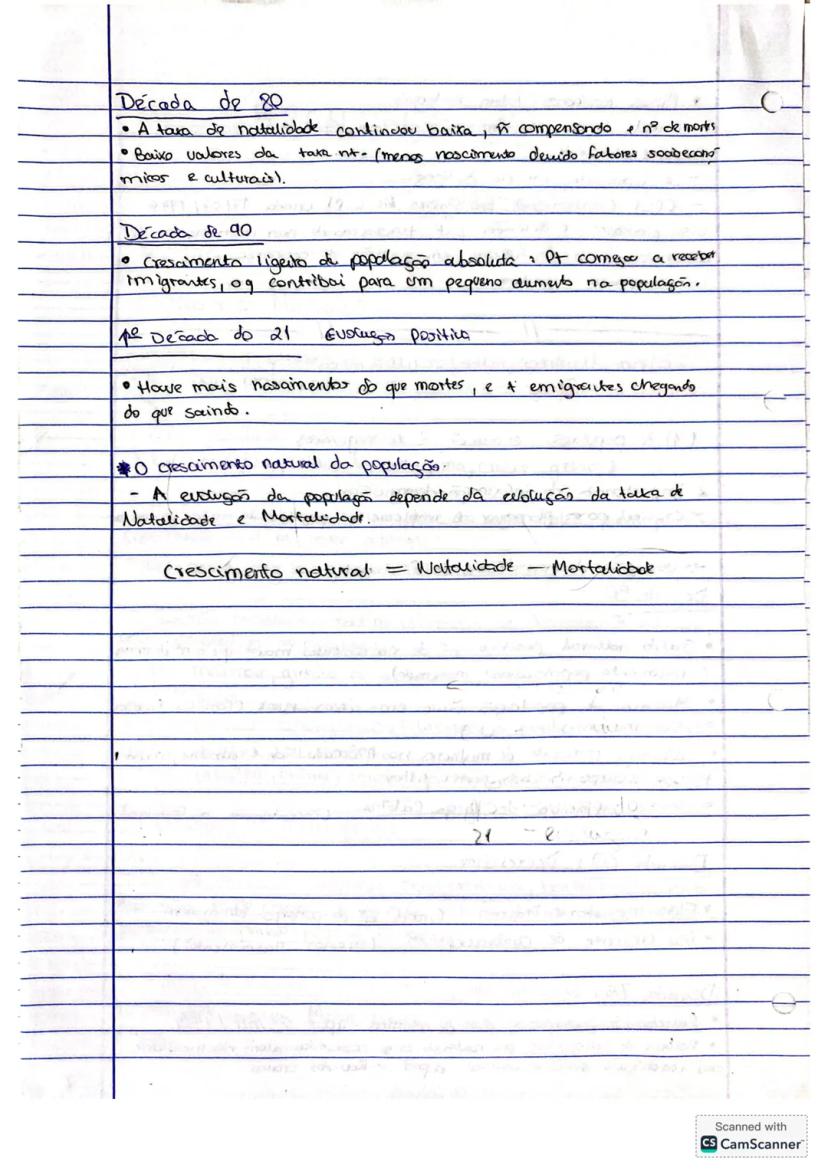 Década de 80
• A taxa de natalidade continuou baixa, ñ compensando o nº de morts
• Baixo valores da taxa nt- (menos nascimento devido fatores socioeconó
micos e culturais).
Década de 90
• Crescimento ligeiro de população absoluta: Pt começou a receber
imigrantes, oq contribui para um pequeno aumento na população.
1º Década do 21 Evolução positiva
• Houve mais nascimentos do que mortes, e + emigrantes chegando
do que saindo.
* O crescimento natural da população.
- A evolução da população depende da evolução da taxa de
Natalidade e Mortalidade.
Crescimento natural = Natalidade - Mortalidade
21 - 2
Scanned with
CS CamScanner